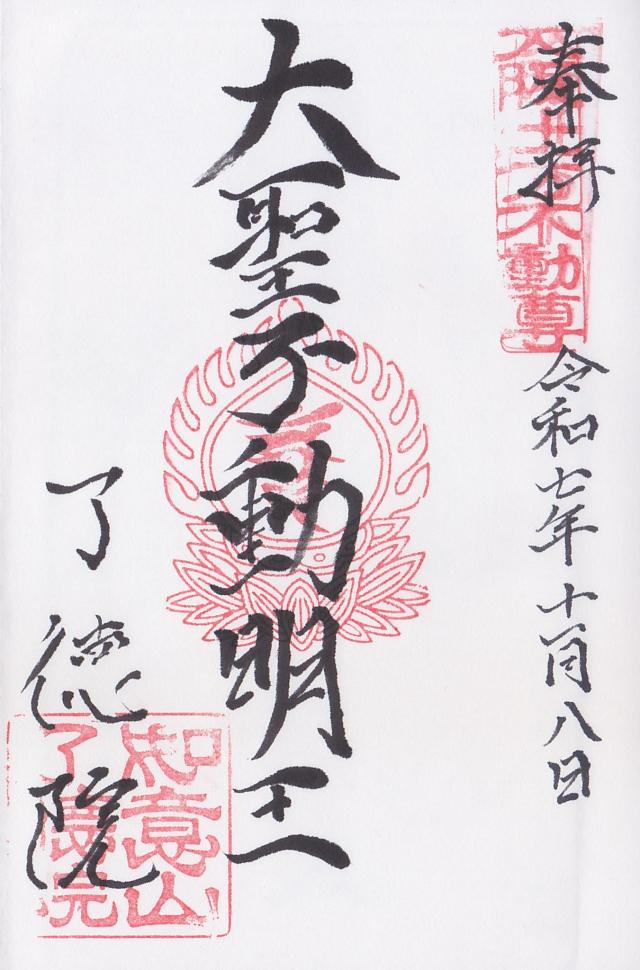 奉拝
不動尊
令和七年十一月八日
大聖不動明王
了徳院
如意山
了徳院